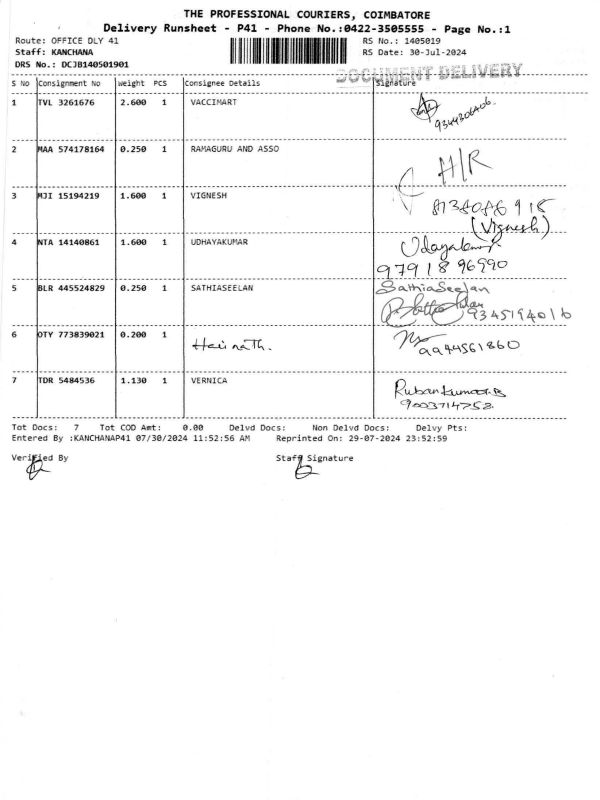 THE PROFESSIONAL COURIERS, COIMBATORE
Delivery Runsheet - P41 - Phone No.:0422-3505555 - Page No.:1
Route: OFFICE DLY 41 RS No.: 1405019
Staff: KANCHANA RS Date: 30-Jul-2024
DRS No.: DCJB140501901
DOCUMENT DELIVERY
S No Consignment No Weight PCS Consignee Details Signature
1 TVL 3261676 2.600 1 VACCIMART
9344306406
2 MAA 574178164 0.250 1 RAMAGURU AND ASSO H/R
3 MJI 15194219 1.600 1 VIGNESH
(Vignesh)
4 NTA 14140861 1.600 1 UDHAYAKUMAR Udayakumar
9791896990
5 BLR 445524829 0.250 1 SATHIASEELAN SathiaSeelan
9345194016
6 OTY 773839021 0.200 1 Harinath. 9944561860
7 TDR 5484536 1.130 1 VERNICA Rubankumar.B
9003714752
Tot Docs: 7 Tot COD Amt: 0.00 Delvd Docs: Non Delvd Docs: Delvy Pts:
Entered By :KANCHANAP41 07/30/2024 11:52:56 AM Reprinted On: 29-07-2024 23:52:59
Verified By Staff Signature